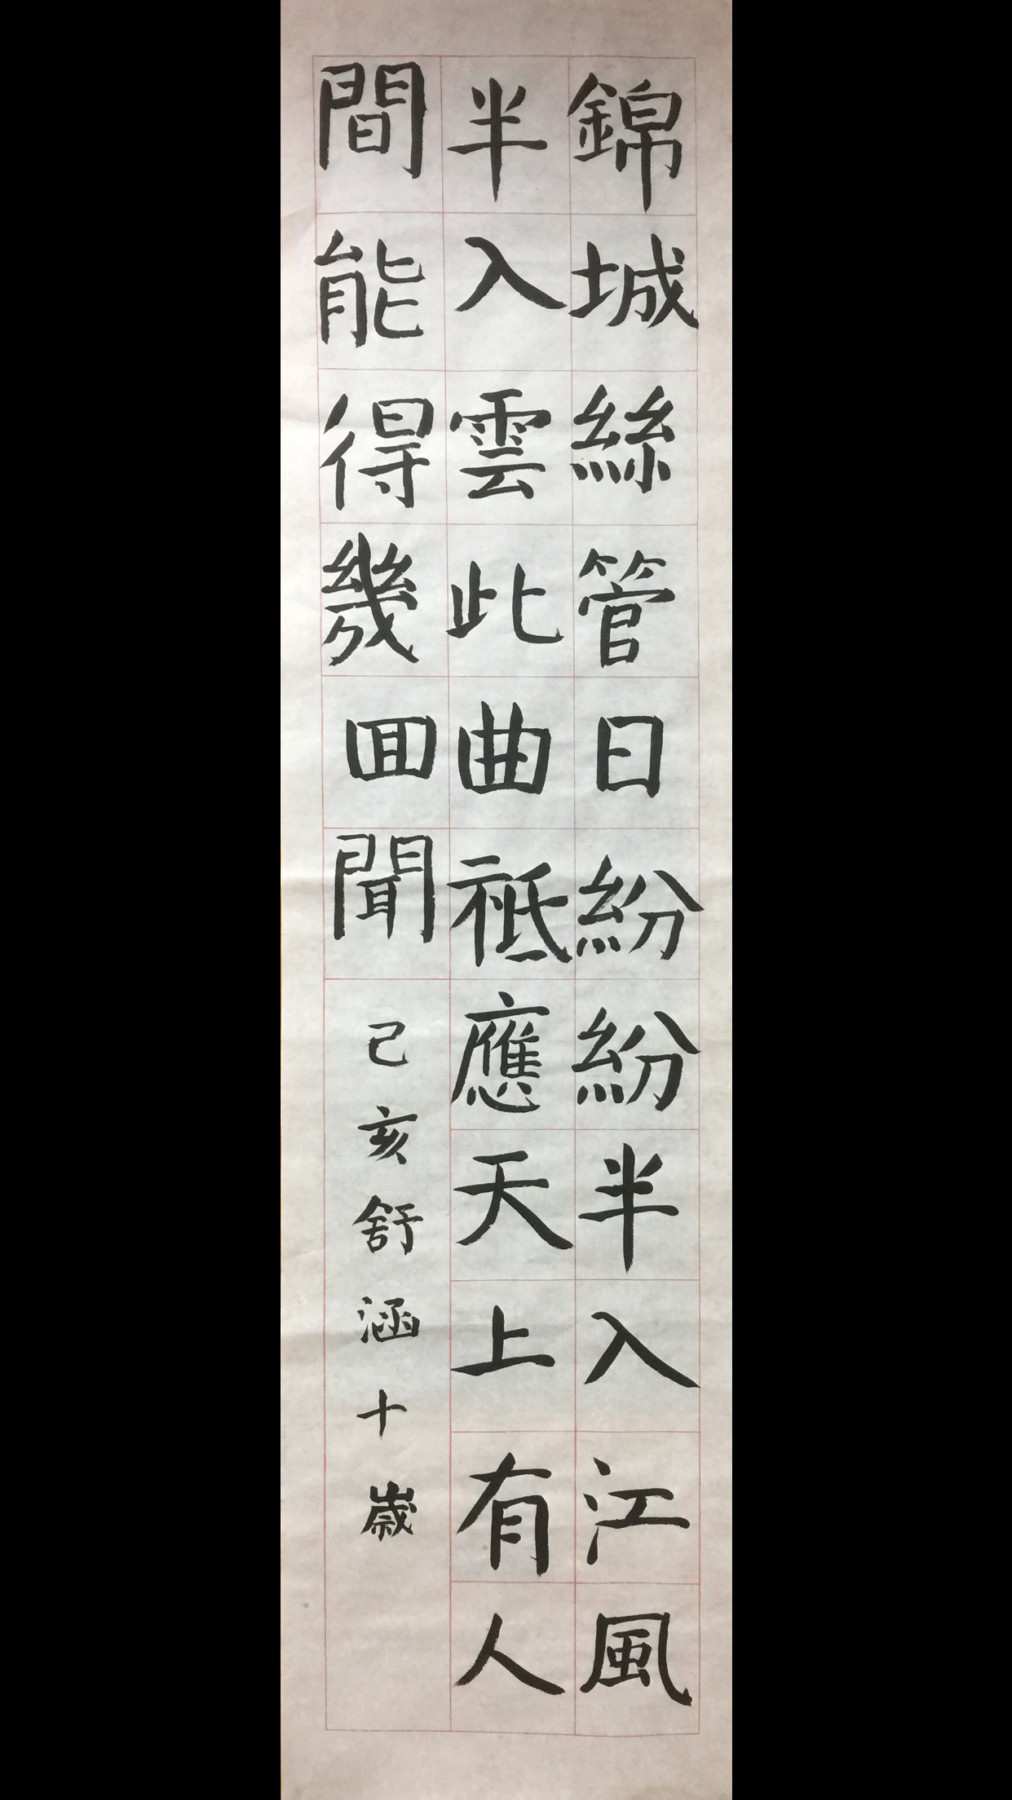 錦城絲管日紛紛半入江風
半入雲此曲祗應天上有人
間能得幾回聞己亥舒涵十歲